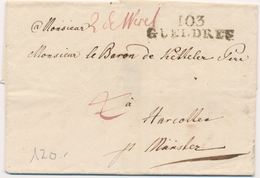 @ Monsieur 2 de Wesel
103
GUELDRES
Monsieur le Baron de Ketteler
à
Harcotten
Münster
120